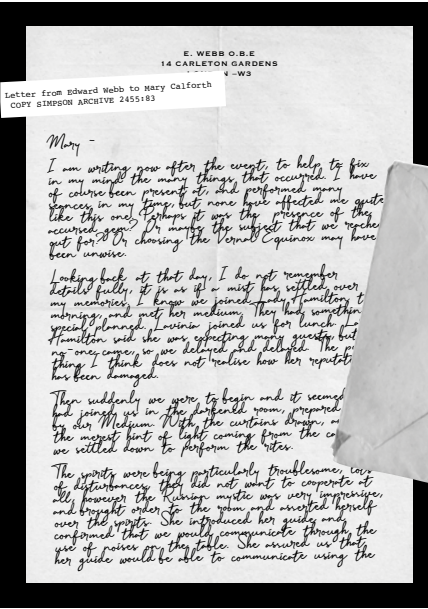 E. WEBB O.B.E
14 CARLETON GARDENS
N –W3
Letter from Edward Webb to Mary Calforth
COPY SIMPSON ARCHIVE 2455:83
Mary -
I am writing now after the event, to help to fix
in my mind the many things that occurred. I have
of course been present at, and performed many
seances in my time, but none have affected me quite
like this one. Perhaps it was the presence of the
accursed gem? Or maybe the subject that we reache
out for? Or choosing the Vernal Equinox may have
been unwise.
Looking back at that day, I do not remember
details fully, it is as if a mist has settled over
my memories. I know we joined Lady Hamilton t
morning, and met her medium. They had somethin
special planned. Lavinia joined us for lunch. La
Hamilton said she was expecting many guests, but
no one came, so we delayed and delayed. The p
thing I think does not realise how her reputat
has been damaged.
Then suddenly we were to begin and it seemed
had joined us in the darkened room, prepared
by our Medium. With the curtains drawn, a
the merest hint of light coming from the ca
we settled down to perform the rites.
The spirits were being particularly troublesome, lots
of disturbances, they did not want to cooperate at
all, however the Russian mystic was very impressive,
and brought order to the room and asserted herself
over the spirits. She introduced her guide and
confirmed that we would communicate through the
use of noises on the table. She assured us that
her guide would be able to communicate using the